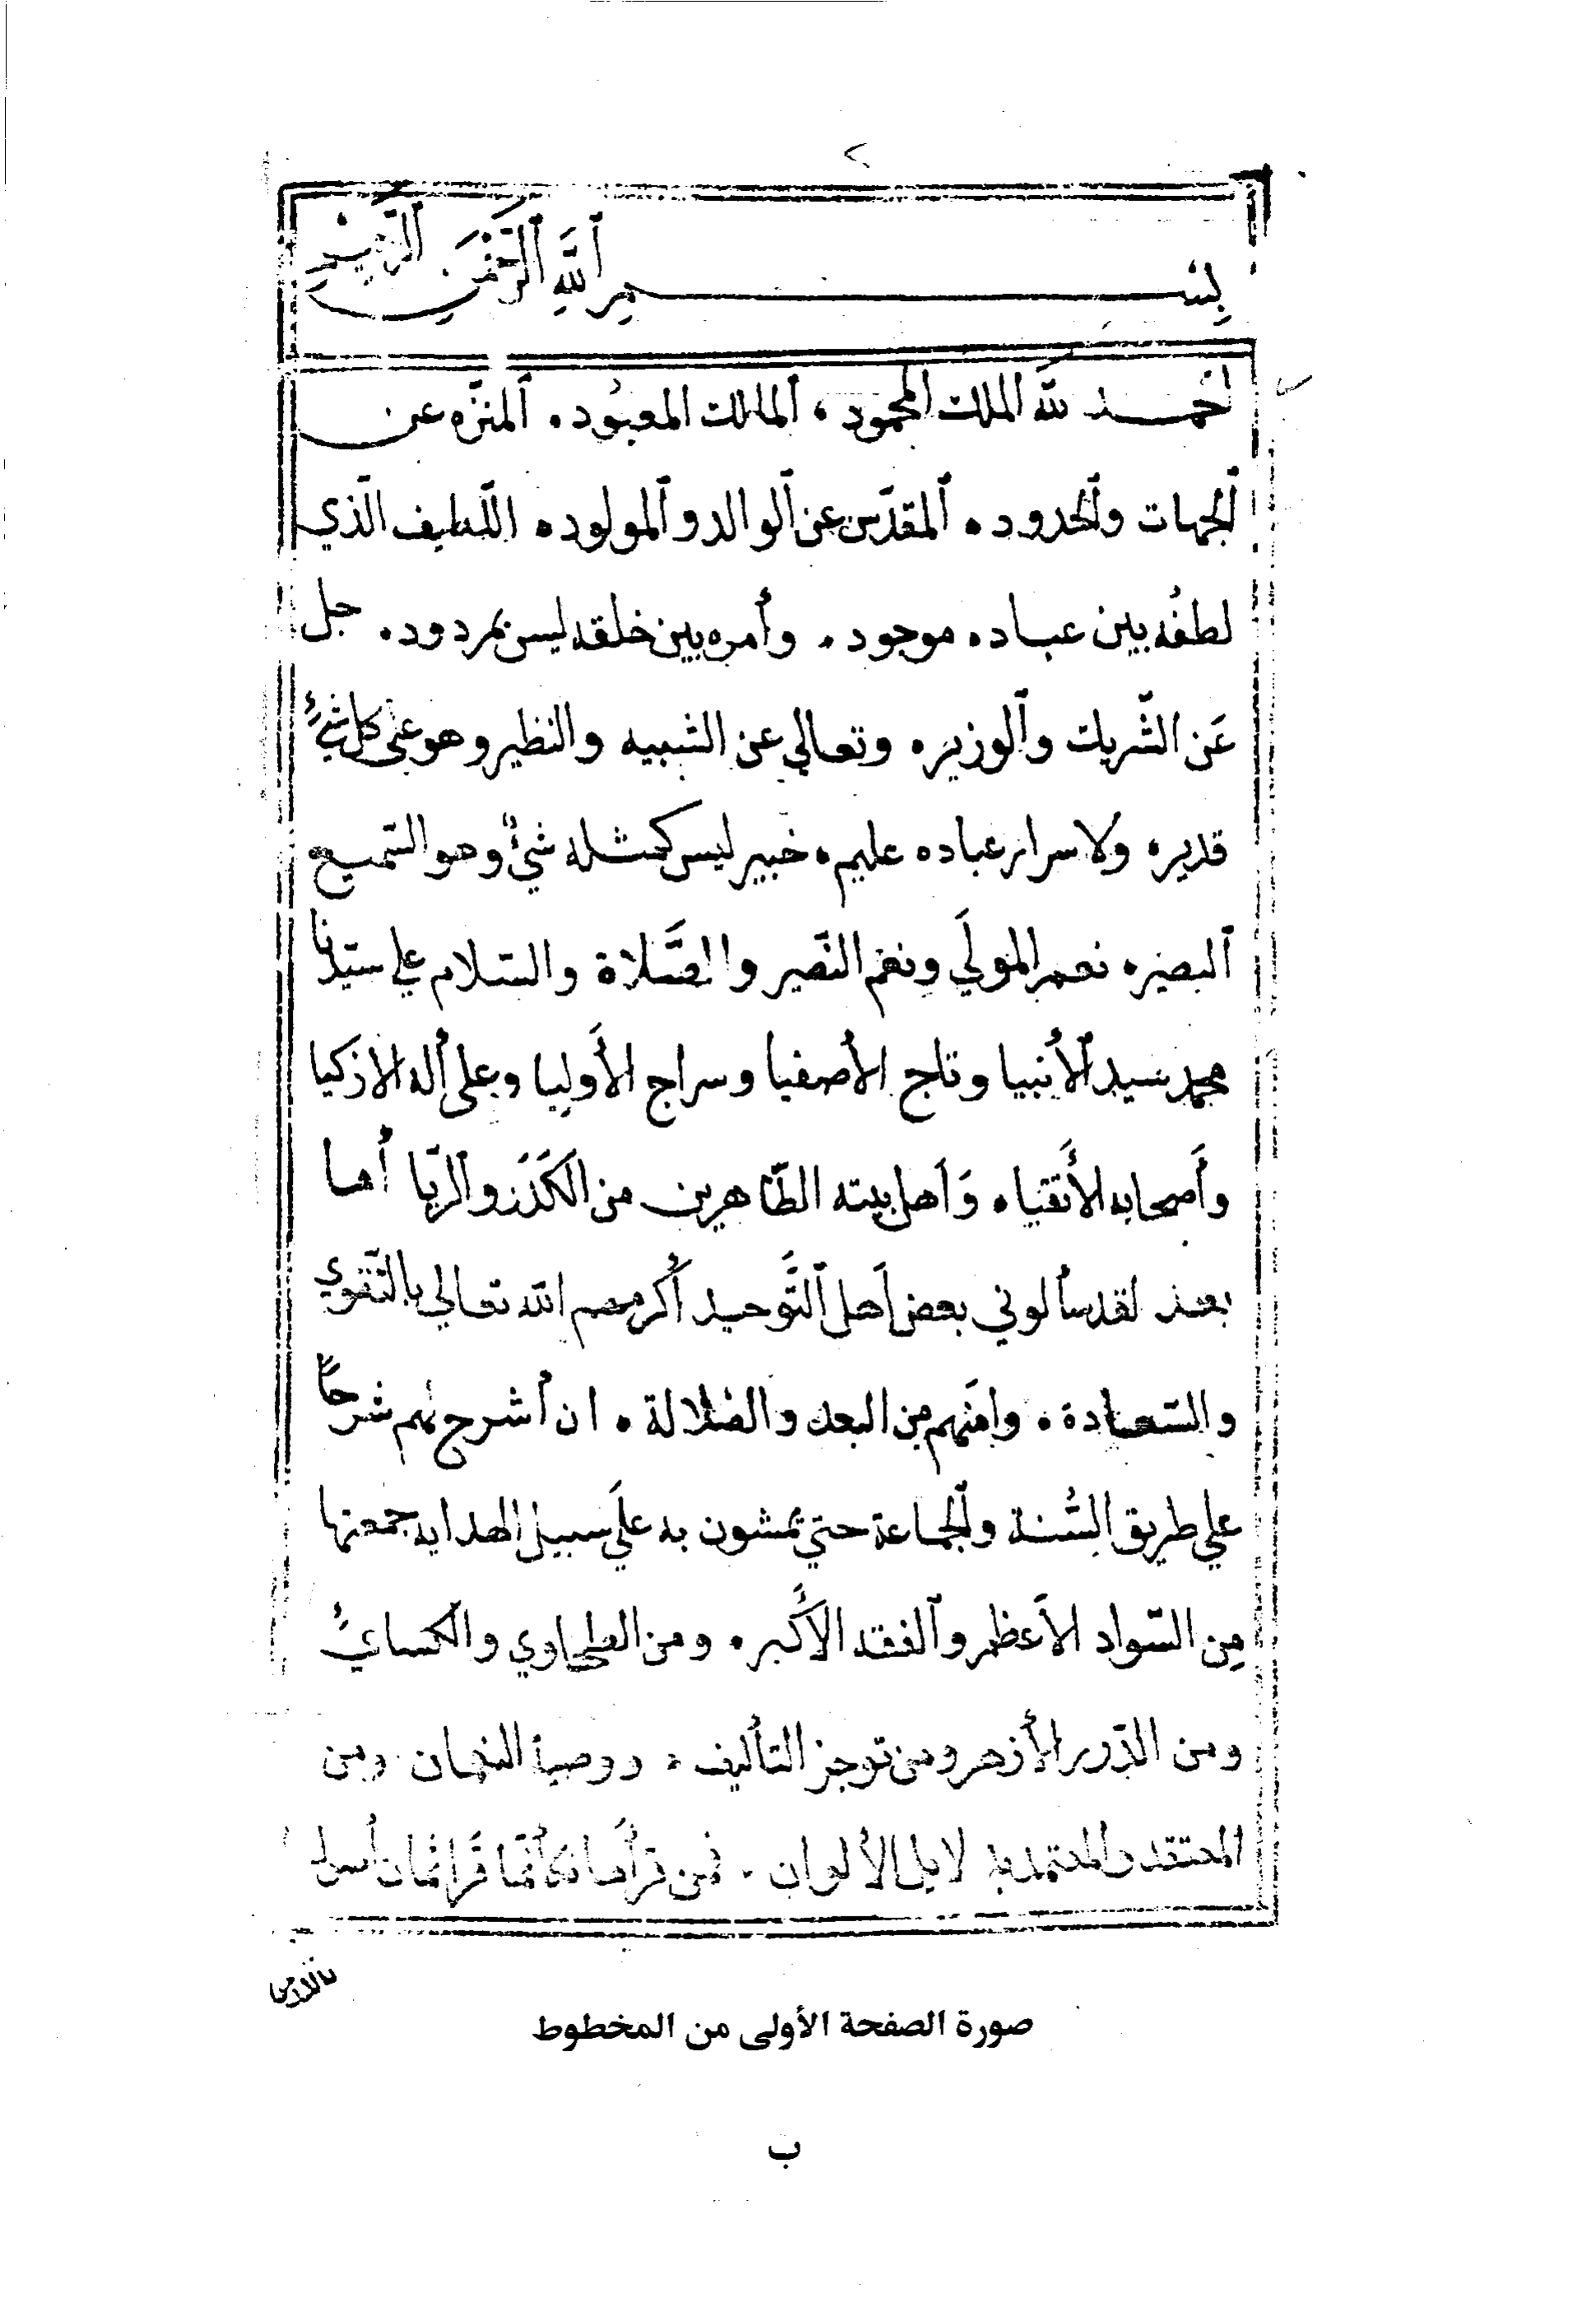 بِسْمِ ٱللَّهِ ٱلرَّحْمَنِ ٱلرَّحِيمِ
احمد لله الملك المحمود، ٱلمالك المعبُود. ٱلمنزّه عن
ٱلجهات وٱلحدود. ٱلمقدّس عن ٱلوالد وٱلمولود. اللّطيف الّذي
لطفُه بين عباده موجود. وأمره بين خلقه ليس بمردود. جل
عَن الشّريك وٱلوزير. وتعالي عن الشبيه والنظير وهو على كل شيْءٍ
قدير. ولاسرار عباده عليم. خبير ليس كمثله شيْءٌ وهو السّميع
ٱلبصير. نعم المولَي ونعم النّصير والصَّلاة والسّلام علي سيّدنا
محمد سيد ٱلأنبيا وتاج الأصفيا وسراج الأوليا وعلى أله الازكيا
وأَصحابه الأَتقيا. وَاَهل بيته الطّاهرين من الكَدَر وٱلرّيا أما
بعد لقد سألوني بعض اَهل ٱلتَّوحيد أكرمهم الله تعالي بالتّقوي
والسّعادة. وامَنهم من البعد والضلالة. ان أشرح لهم شرحاً
علي طريق السُّنة وٱلجماعة حتي يمشون به علَي سبيل الهدايه جمعتها
مِن السّواد الاَعظم وٱلفقه الاَكبر. ومن الطحاوي والكسائيُ
ومن الدّرر الأزهر ومن توجز التأليف. ووصية النعمان ومن
المعتقد والمعتمد به لايل الألوان. فمن قرأها
صورة الصفحة الأولى من المخطوط
ب